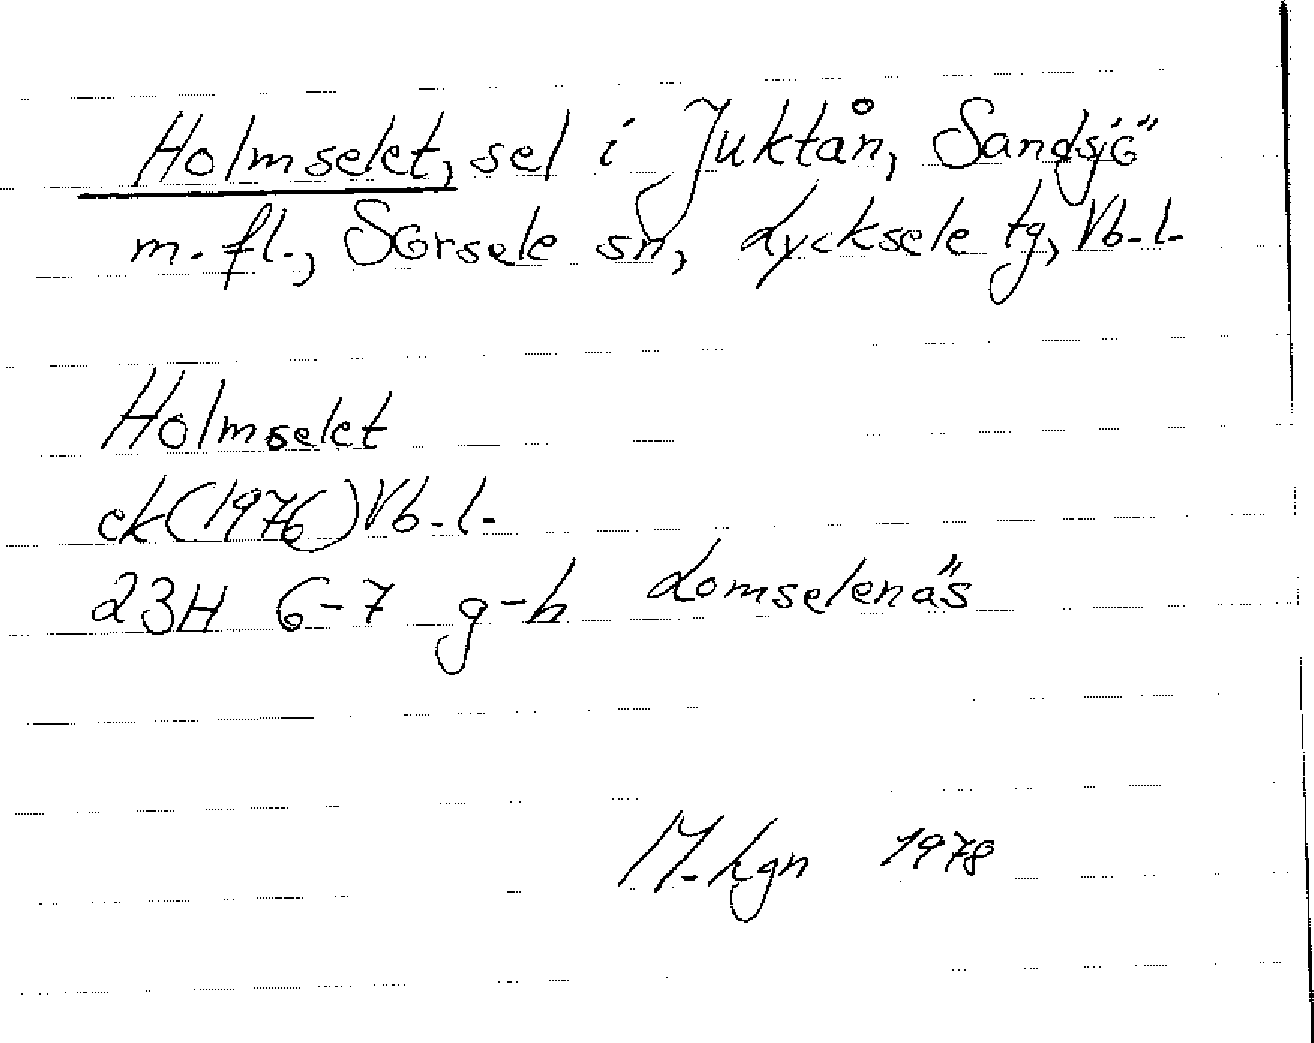 Holmselet, sel i Juktån, Sandsjö
m.fl., Sorsele sn, Lycksele tg, Vb.l.
Holmselet
ek(1976)Vb.l.
23H 6-7 g-h Lomselenäs
M.hgn 1978